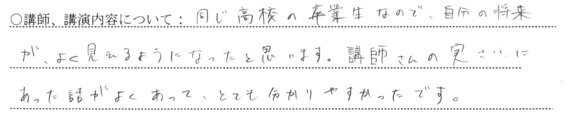 ○講師、講演内容について：同じ高校の卒業生なので、自分の将来
が、よく見えるようになったと思います。講師さんの実さいに
あった話がよくあって、とても分かりやすかったです。